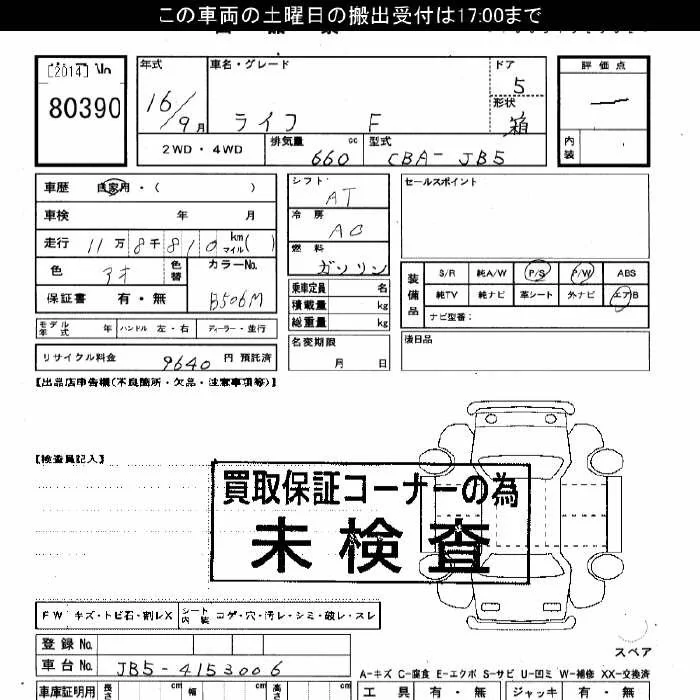 この車両の土曜日の搬出受付は17:00まで
[2014] No
80390
年式
16/9月
車名・グレード
ライフ F
ドア
5
形状
箱
評価点
内装
2WD・4WD
排気量 660 cc
型式 CBA- JB5
車歴 自家用・( )
車検 年 月
走行 11万8千810 km マイル( )
色 アオ 色替
カラーNo.
B506M
保証書 有・無
モデル年式 年 ハンドル 左・右 ディーラー・並行
リサイクル料金 9640 円 預託済
シフト
AT
冷房
AC
燃料
ガソリン
乗車定員 名
積載量 kg
総重量 kg
名変期限
月 日
セールスポイント
装備品
S/R 純A/W P/S P/W ABS
純TV 純ナビ 革シート 外ナビ エアB
ナビ型番:
後日品
【出品店申告欄(不良箇所・欠品・注意事項等)】
【検査員記入】
買取保証コーナーの為
未検査
FW キズ・トビ石・割レX
シート内装 コゲ・穴・汚レ・シミ・破レ・スレ
登録No.
車台No. JB5-4153006
スペア
A-キズ C-腐食 E-エクボ S-サビ U-凹ミ W-補修 XX-交換済
車庫証明用 長さ cm 幅 cm 高さ cm
工具 有・無 ジャッキ 有・無